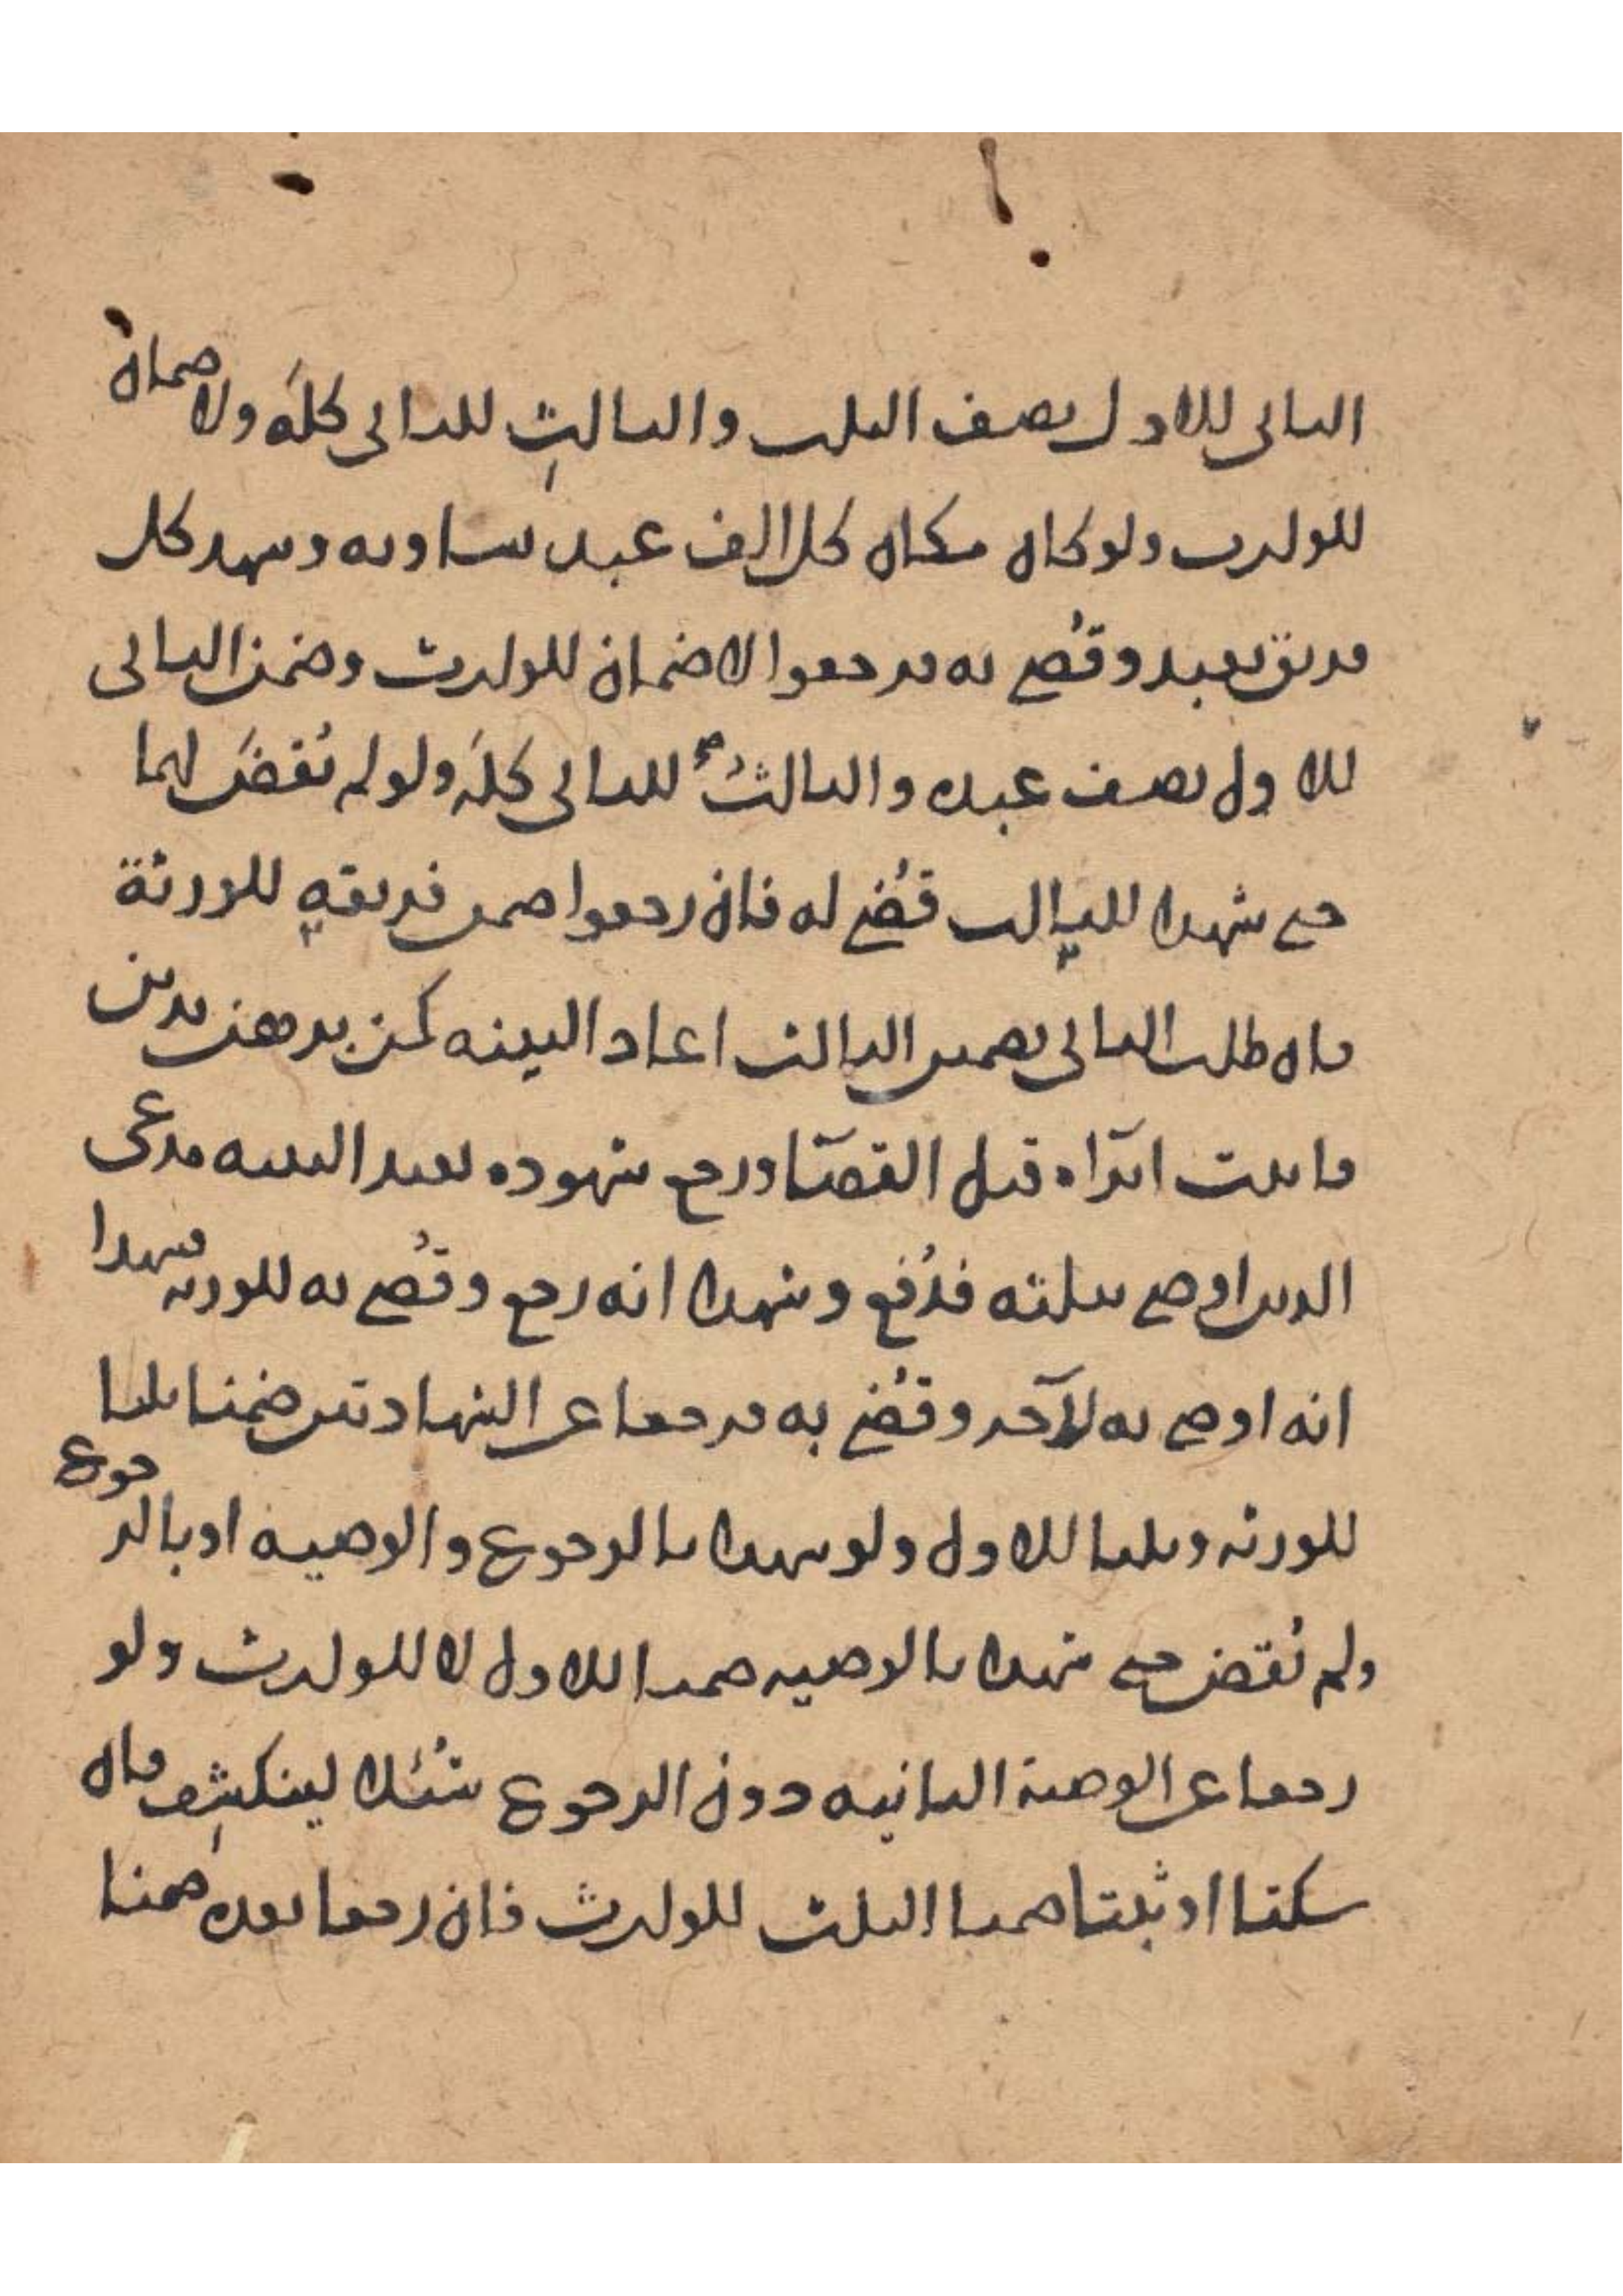 الثاني للاول نصف الثلث والثالث للثاني كله ولا ضمان
للوارث ولو كان مكان كل الف عبد يساويه وشهد كل
فريق بعبد وقضي به فرجعوا لا ضمان للوارث وضمن الثاني
للاول نصف عبده والثالث للثاني كله ولو لم يقض لهما
حتى شهدا للثالث قضي له فان رجعوا ضمن فريقه للورثة
فان طلب الثاني تضمين الثالث اعاد البينة كمن برهن بدين
فاثبت ابراه قبل القضا ورجع شهوده يعيد البينة مدعي
الدين اوصى بثلثه فدفع وشهدا انه رجع وقضي به للورثة فشهدا
انه اوصى به لآخر وقضي به فرجعا عن الشهادتين ضمنا ثلثا
للورثة وثلثا للاول ولو شهدا بالرجوع والوصية او بالرجوع
ولم يقض حتى شهدا بالوصية ضمنا للاول لا للوارث ولو
رجعا عن الوصية الثانية دون الرجوع سئلا لينكشف فان
سكتا او ثبتا ضمنا الثلث للوارث فان رجعا بعده ضمنا